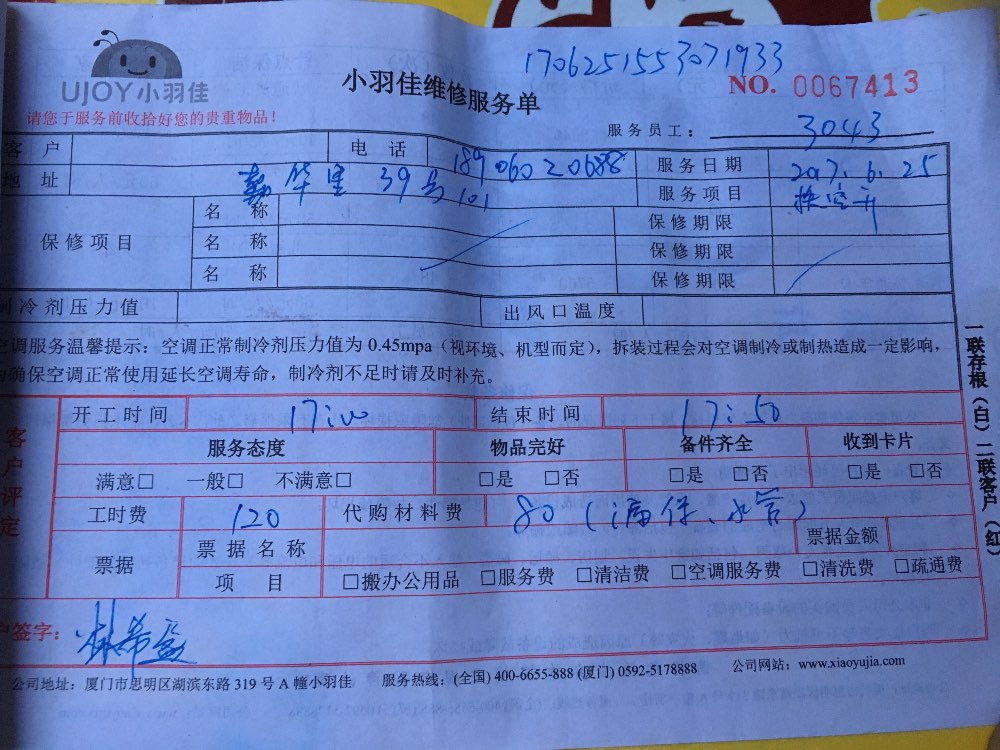 170625155307​1933
UJOY小羽佳
小羽佳维修服务单
NO. 0067413
请您于服务前收拾好您的贵重物品！
服务员工： 3043
客 户 电 话 18906020688 服务日期 2017.6.25
地 址 嘉华里39号101 服务项目 换空开
保修项目 名 称 保修期限
名 称 保修期限
名 称 保修期限
制冷剂压力值 出风口温度
空调服务温馨提示：空调正常制冷剂压力值为 0.45mpa（视环境、机型而定），拆装过程会对空调制冷或制热造成一定影响，
为确保空调正常使用延长空调寿命，制冷剂不足时请及时补充。
一联存根（白）二联客户（红）
客户评定
开工时间 17:00 结束时间 17:50
服务态度 物品完好 备件齐全 收到卡片
满意□ 一般□ 不满意□ □是 □否 □是 □否 □是 □否
工时费 120 代购材料费 80（漏保、水管）
票据 票据名称 票据金额
项 目 □搬办公用品 □服务费 □清洁费 □空调服务费 □清洗费 □疏通费
户签字：林希盈
公司地址：厦门市思明区湖滨东路 319 号 A 幢小羽佳 服务热线：(全国) 400-6655-888 (厦门) 0592-5178888 公司网站：www.xiaoyujia.com